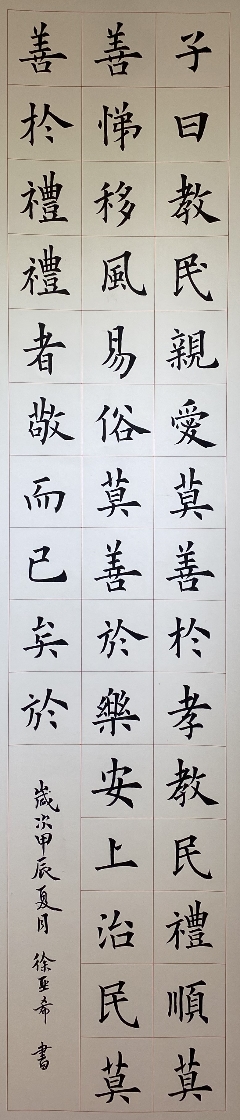 子曰教民親愛莫善於孝教民禮順莫
善悌移風易俗莫善於樂安上治民莫
善於禮禮者敬而已矣於
歲次甲辰夏月 徐亚希 書